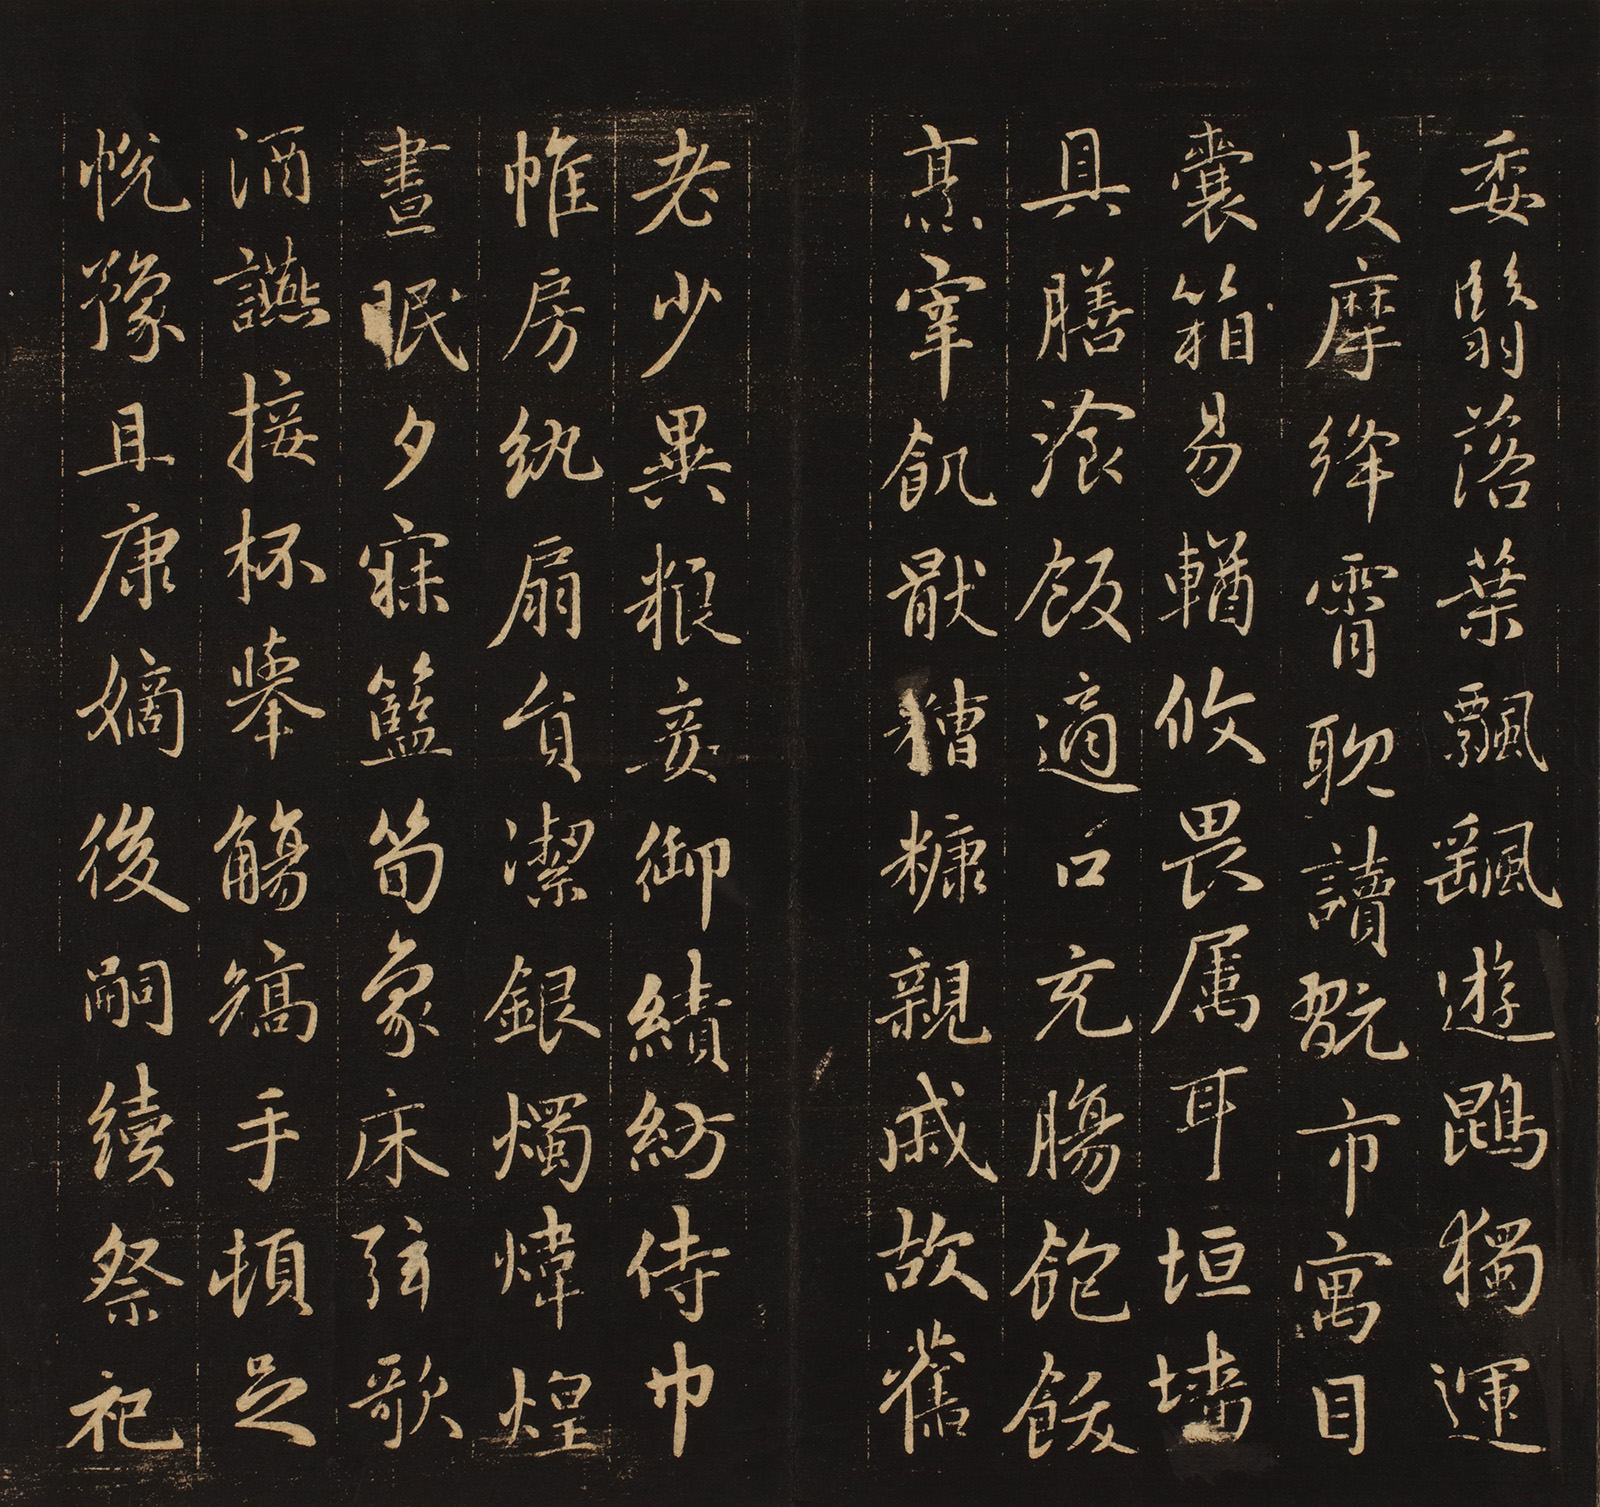 委翳落葉飄颻遊鵾獨運
凌摩絳霄耽讀翫市寓目
囊箱易輶攸畏属耳垣墻
具膳湌飯適口充腸飽飫
烹宰飢猒糟糠親戚故舊
老少異粮妾御績紡侍巾
帷房紈扇員潔銀燭煒煌
晝眠夕寐籃笱象床弦歌
酒讌接杯舉觴矯手頓足
悅豫且康嫡後嗣續祭祀